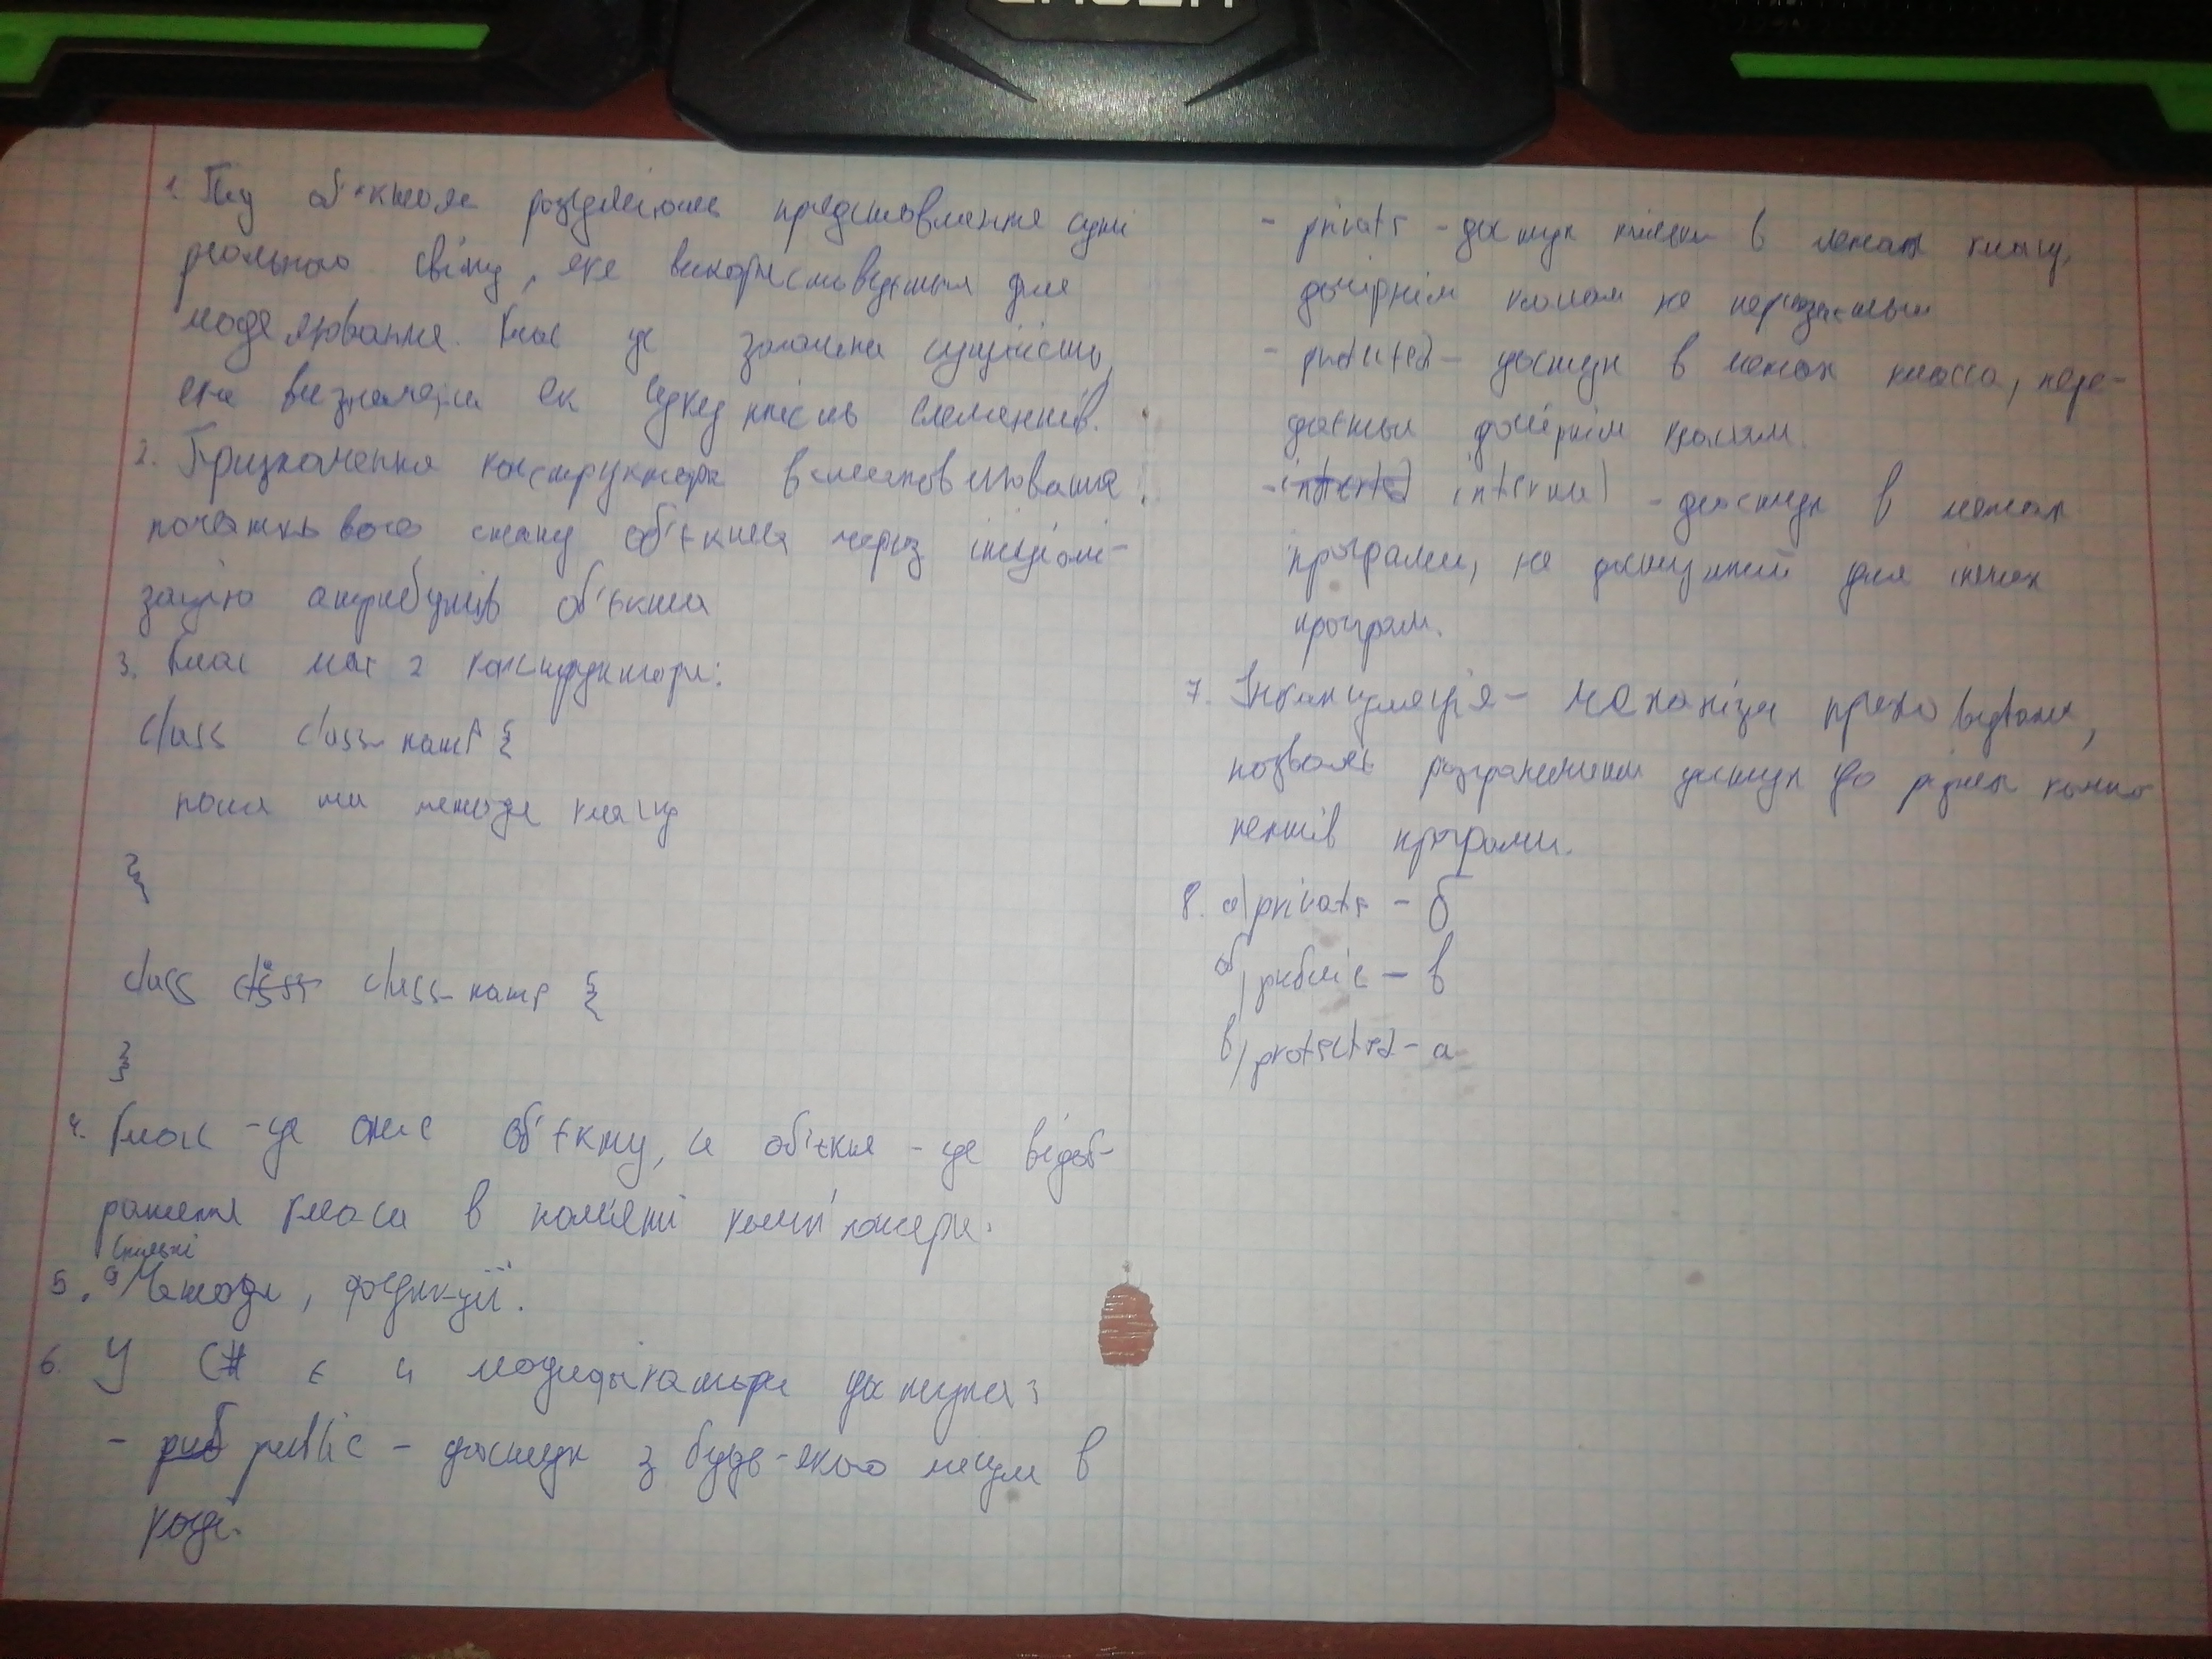 1. Під об'єктом розуміють представлення суті
реального світу, яке використовується для
моделювання. Клас це загальна сущність,
яка визначена як сукупність елементів.
2. Призначення конструктора встановлювання
початкового стану об'єкта через ініціалі-
зацію атрибутів об'єкта
3. Клас має 2 конструктори:
class class-name {
поля та методи класу
}
class class-name {
}
4. Клас - це опис об'єкту, а об'єкт - це відоб-
раження класа в пам'яті комп'ютера.
Спільні
5. Методи, функції.
6. У C# є 4 модифікатори доступа:
- public - доступ з будь-якого місця в
коді.
- private - доступ тільки в межах класу,
дочірнім класам не передається
- protected - доступ в межах класса, пере-
дається дочірнім класам.
- internal - доступ в межах
програми, не доступний для інших
програм.
7. Інкапсуляція - механізм приховування,
дозволяє розграничити доступ до різних компо
нентів програми.
8. а) private - б
б) public - в
в) protected - а